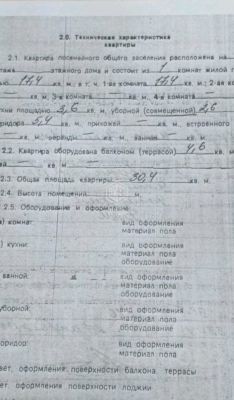 2.0. Техническая характеристика
квартиры
2.1. Квартира посемейного общего заселения расположена на
этажа этажного дома и состоит из 1 комнат жилой п
17,4 кв. м, в т. ч. 1-ая комната 17,4 кв. м; 2-ая ко
кв. м, 3-я комната кв. м, 4-я комната
кухни площадью кв. м, уборной (совмещенной) 2,6
коридора 5,4 кв. м, прихожей кв. м, встроенного
кв. м, веранды кв. м, ванной кв. м
2.2. Квартира оборудована балконом (террасой) 4,6 кв. м,
кв. м
2.3. Общая площадь квартиры 30,4 кв. м
2.4. Высота помещений м
2.5. Оборудование и оформление
) комнат: вид оформления
материал пола
) кухни: вид оформления
материал пола
оборудование
ванной: вид оформления
материал пола
оборудование
уборной: вид оформления
материал пола
оборудование
коридор: вид оформления
материал пола
цвет, оформления поверхности балкона террасы
цвет, оформления поверхности лоджии